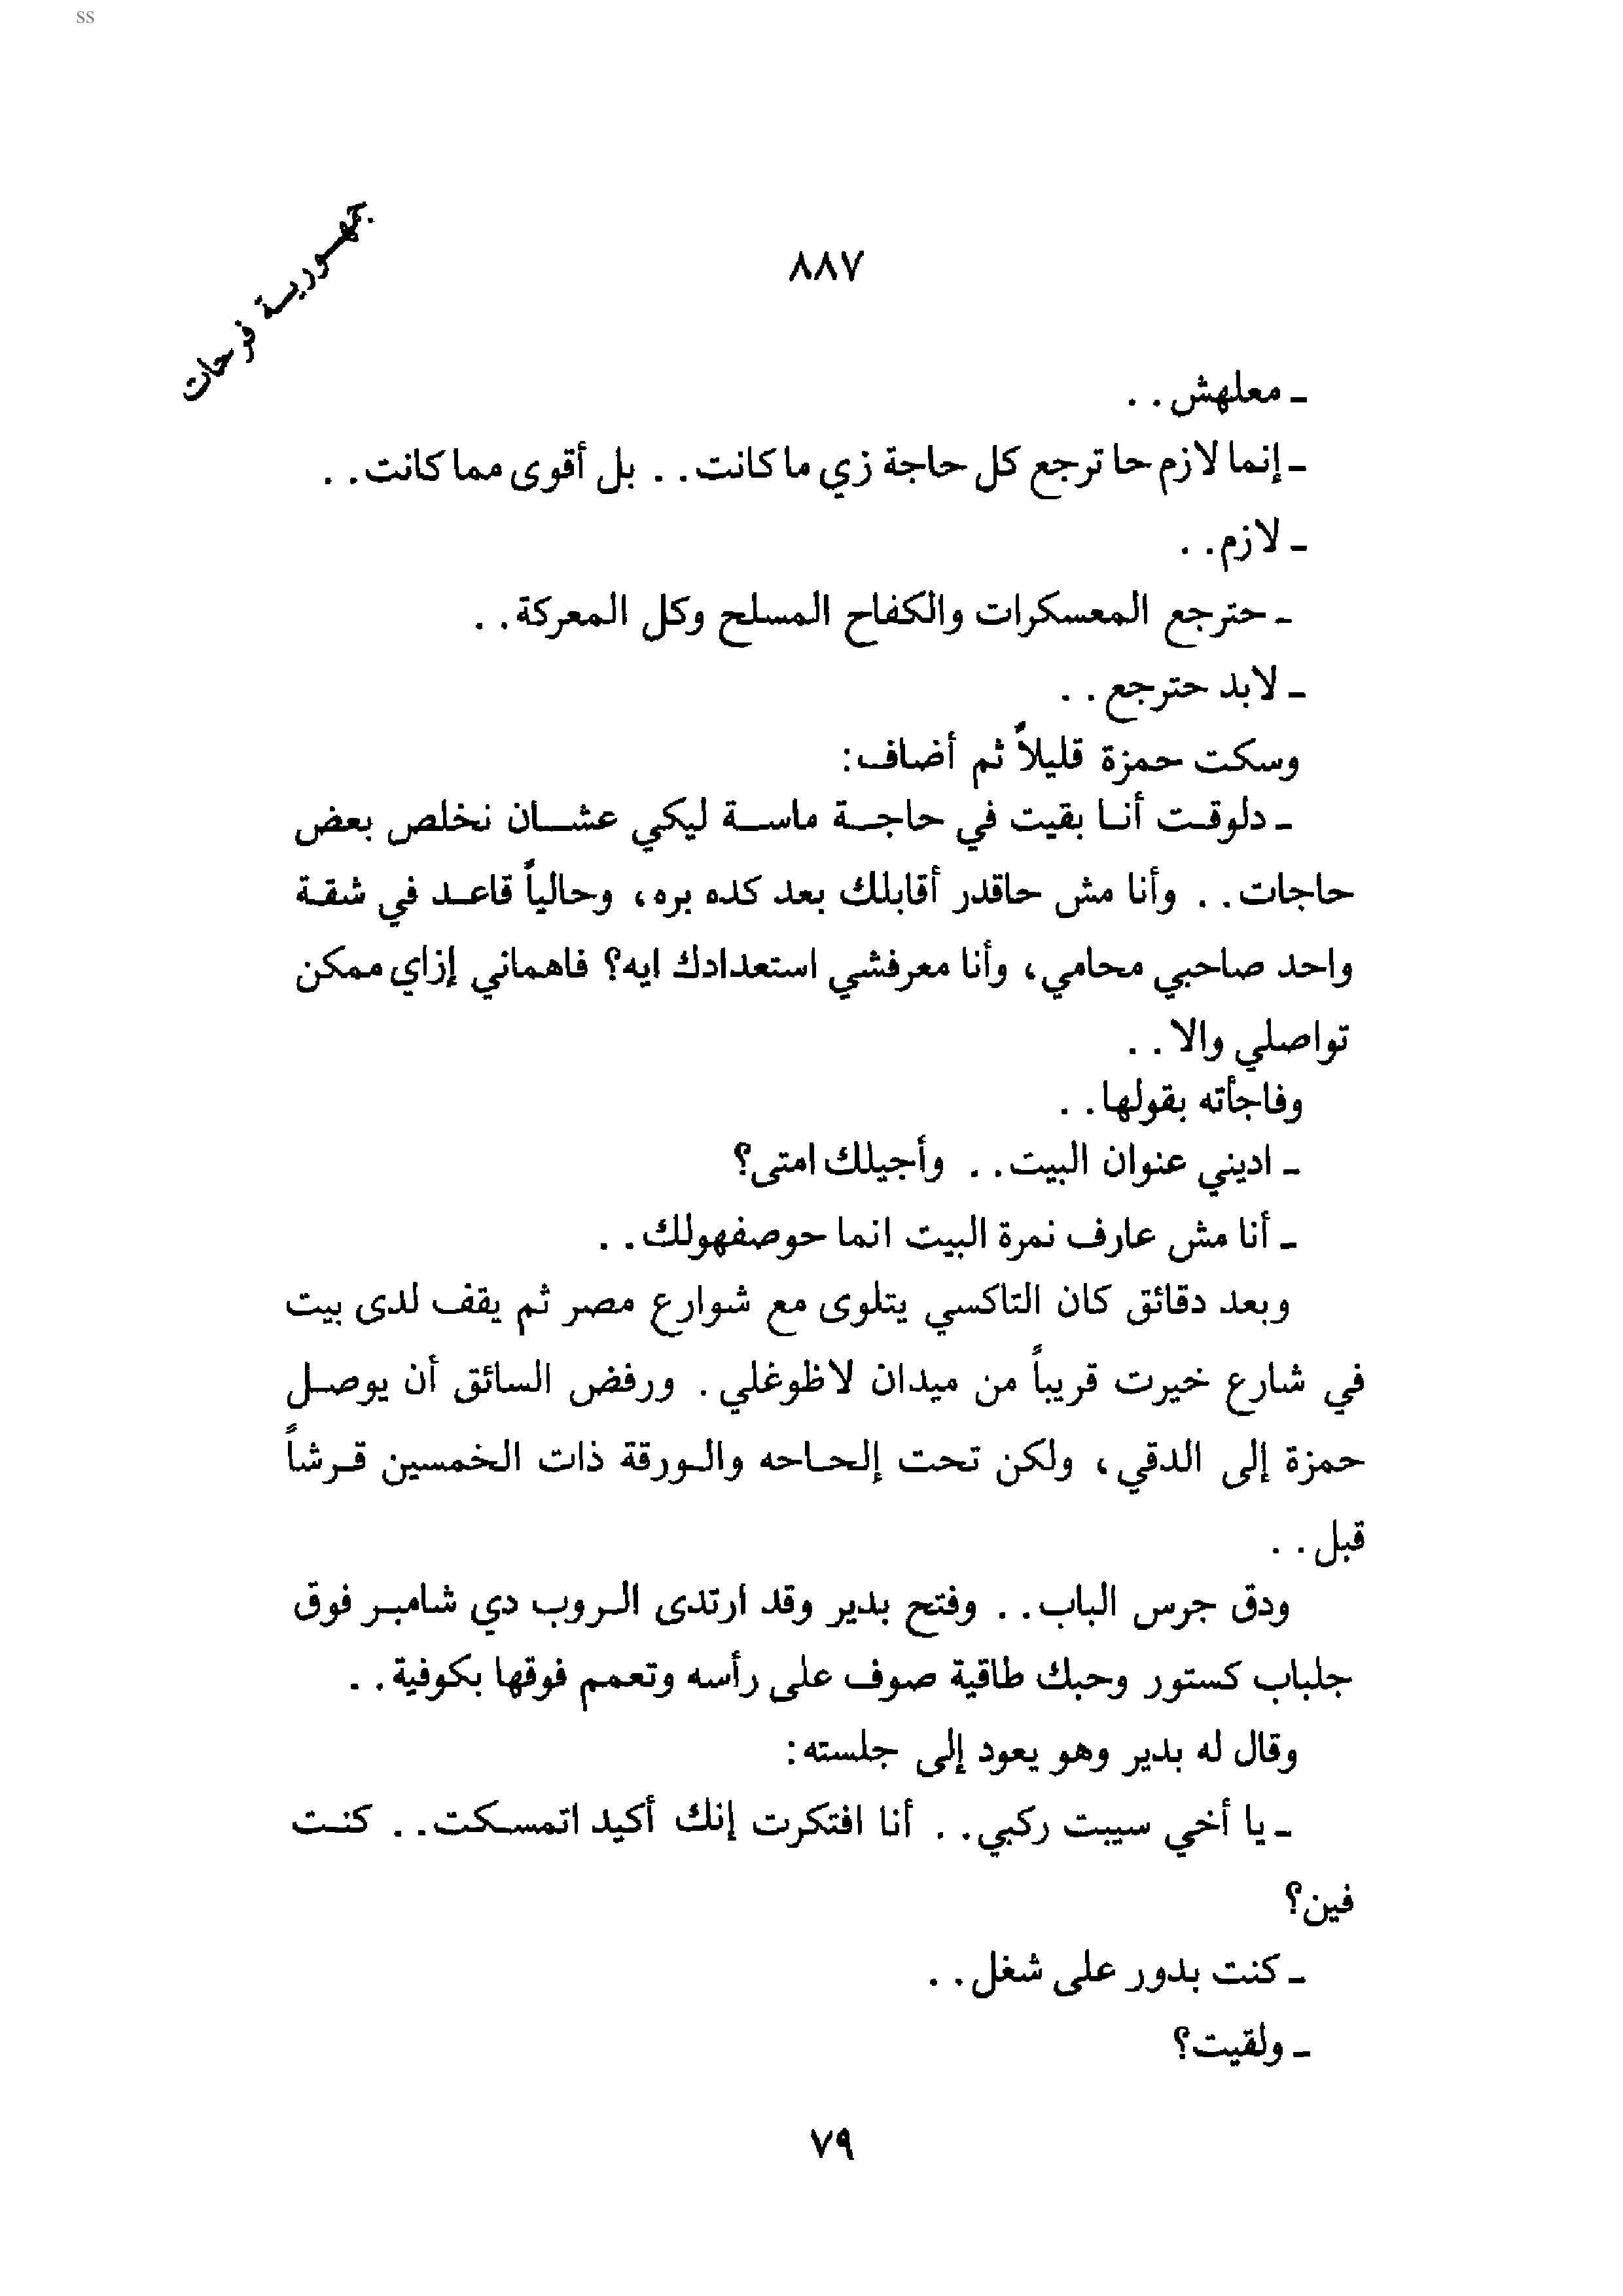 ss
جمهورية فرحات
٨٨٧
ـ معلهش . .
ـ إنما لازم حا ترجع كل حاجة زي ما كانت . . بل أقوى مما كانت . .
ـ لازم . .
ـ حترجع المعسكرات والكفاح المسلح وكل المعركة . .
ـ لابد حترجع . .
وسكت حمزة قليلاً ثم أضاف:
ـ دلوقت أنا بقيت في حاجة ماسة ليكي عشان نخلص بعض
حاجات . . وأنا مش حاقدر أقابلك بعد كده بره، وحالياً قاعد في شقة
واحد صاحبي محامي، وأنا معرفشي استعدادك ايه؟ فاهماني إزاي ممكن
تواصلي والا . .
وفاجأته بقولها . .
ـ اديني عنوان البيت . . وأجيلك امتى؟
ـ أنا مش عارف نمرة البيت انما حوصفهولك . .
وبعد دقائق كان التاكسي يتلوى مع شوارع مصر ثم يقف لدى بيت
في شارع خيرت قريباً من ميدان لاظوغلي . ورفض السائق أن يوصل
حمزة إلى الدقي، ولكن تحت إلحاحه والورقة ذات الخمسين قرشاً
قبل . .
ودق جرس الباب . . وفتح بدير وقد ارتدى الروب دي شامبر فوق
جلباب كستور وحبك طاقية صوف على رأسه وتعمم فوقها بكوفية . .
وقال له بدير وهو يعود إلى جلسته:
ـ يا أخي سيبت ركبي . . أنا افتكرت إنك أكيد اتمسكت . . كنت
فين؟
ـ كنت بدور على شغل . .
ـ ولقيت؟
٧٩